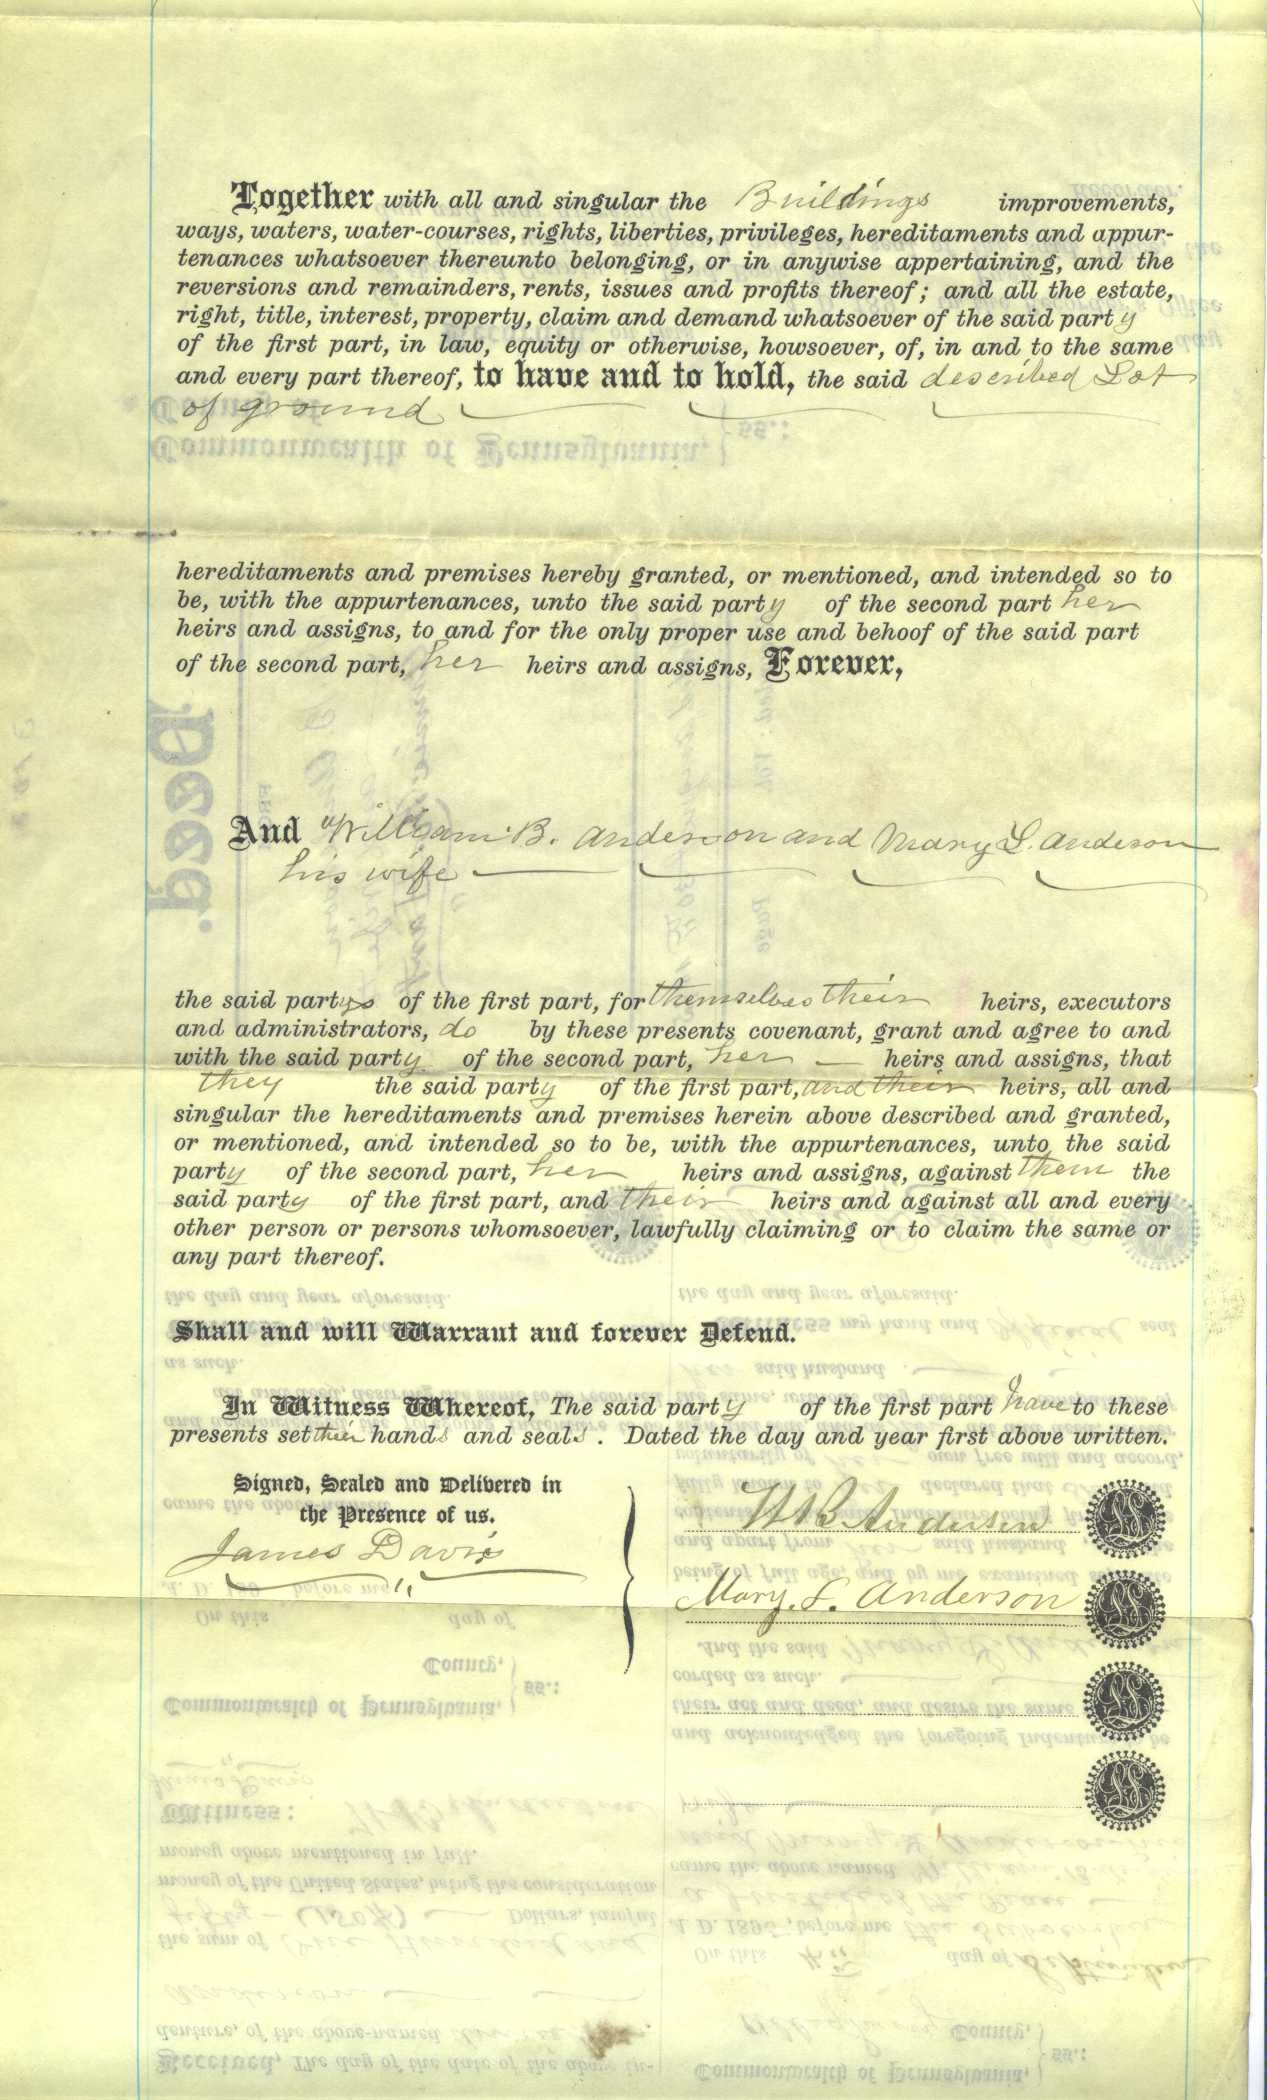 Together with all and singular the Buildings improvements,
ways, waters, water-courses, rights, liberties, privileges, hereditaments and appur-
tenances whatsoever thereunto belonging, or in anywise appertaining, and the
reversions and remainders, rents, issues and profits thereof; and all the estate,
right, title, interest, property, claim and demand whatsoever of the said party
of the first part, in law, equity or otherwise, howsoever, of, in and to the same
and every part thereof, to have and to hold, the said described Lot
of ground
hereditaments and premises hereby granted, or mentioned, and intended so to
be, with the appurtenances, unto the said party of the second part her
heirs and assigns, to and for the only proper use and behoof of the said part
of the second part, her heirs and assigns, Forever,
And William B. Anderson and Mary L. Anderson
his wife
the said partys of the first part, for themselves their heirs, executors
and administrators, do by these presents covenant, grant and agree to and
with the said party of the second part, her heirs and assigns, that
they the said party of the first part, and their heirs, all and
singular the hereditaments and premises herein above described and granted,
or mentioned, and intended so to be, with the appurtenances, unto the said
party of the second part, her heirs and assigns, against them the
said party of the first part, and their heirs and against all and every
other person or persons whomsoever, lawfully claiming or to claim the same or
any part thereof.
Shall and will Warrant and forever Defend.
In Witness Whereof, The said party of the first part have to these
presents set their hands and seals. Dated the day and year first above written.
Signed, Sealed and Delivered in
the Presence of us.
James Davis
W B Anderson
Mary. L. Anderson